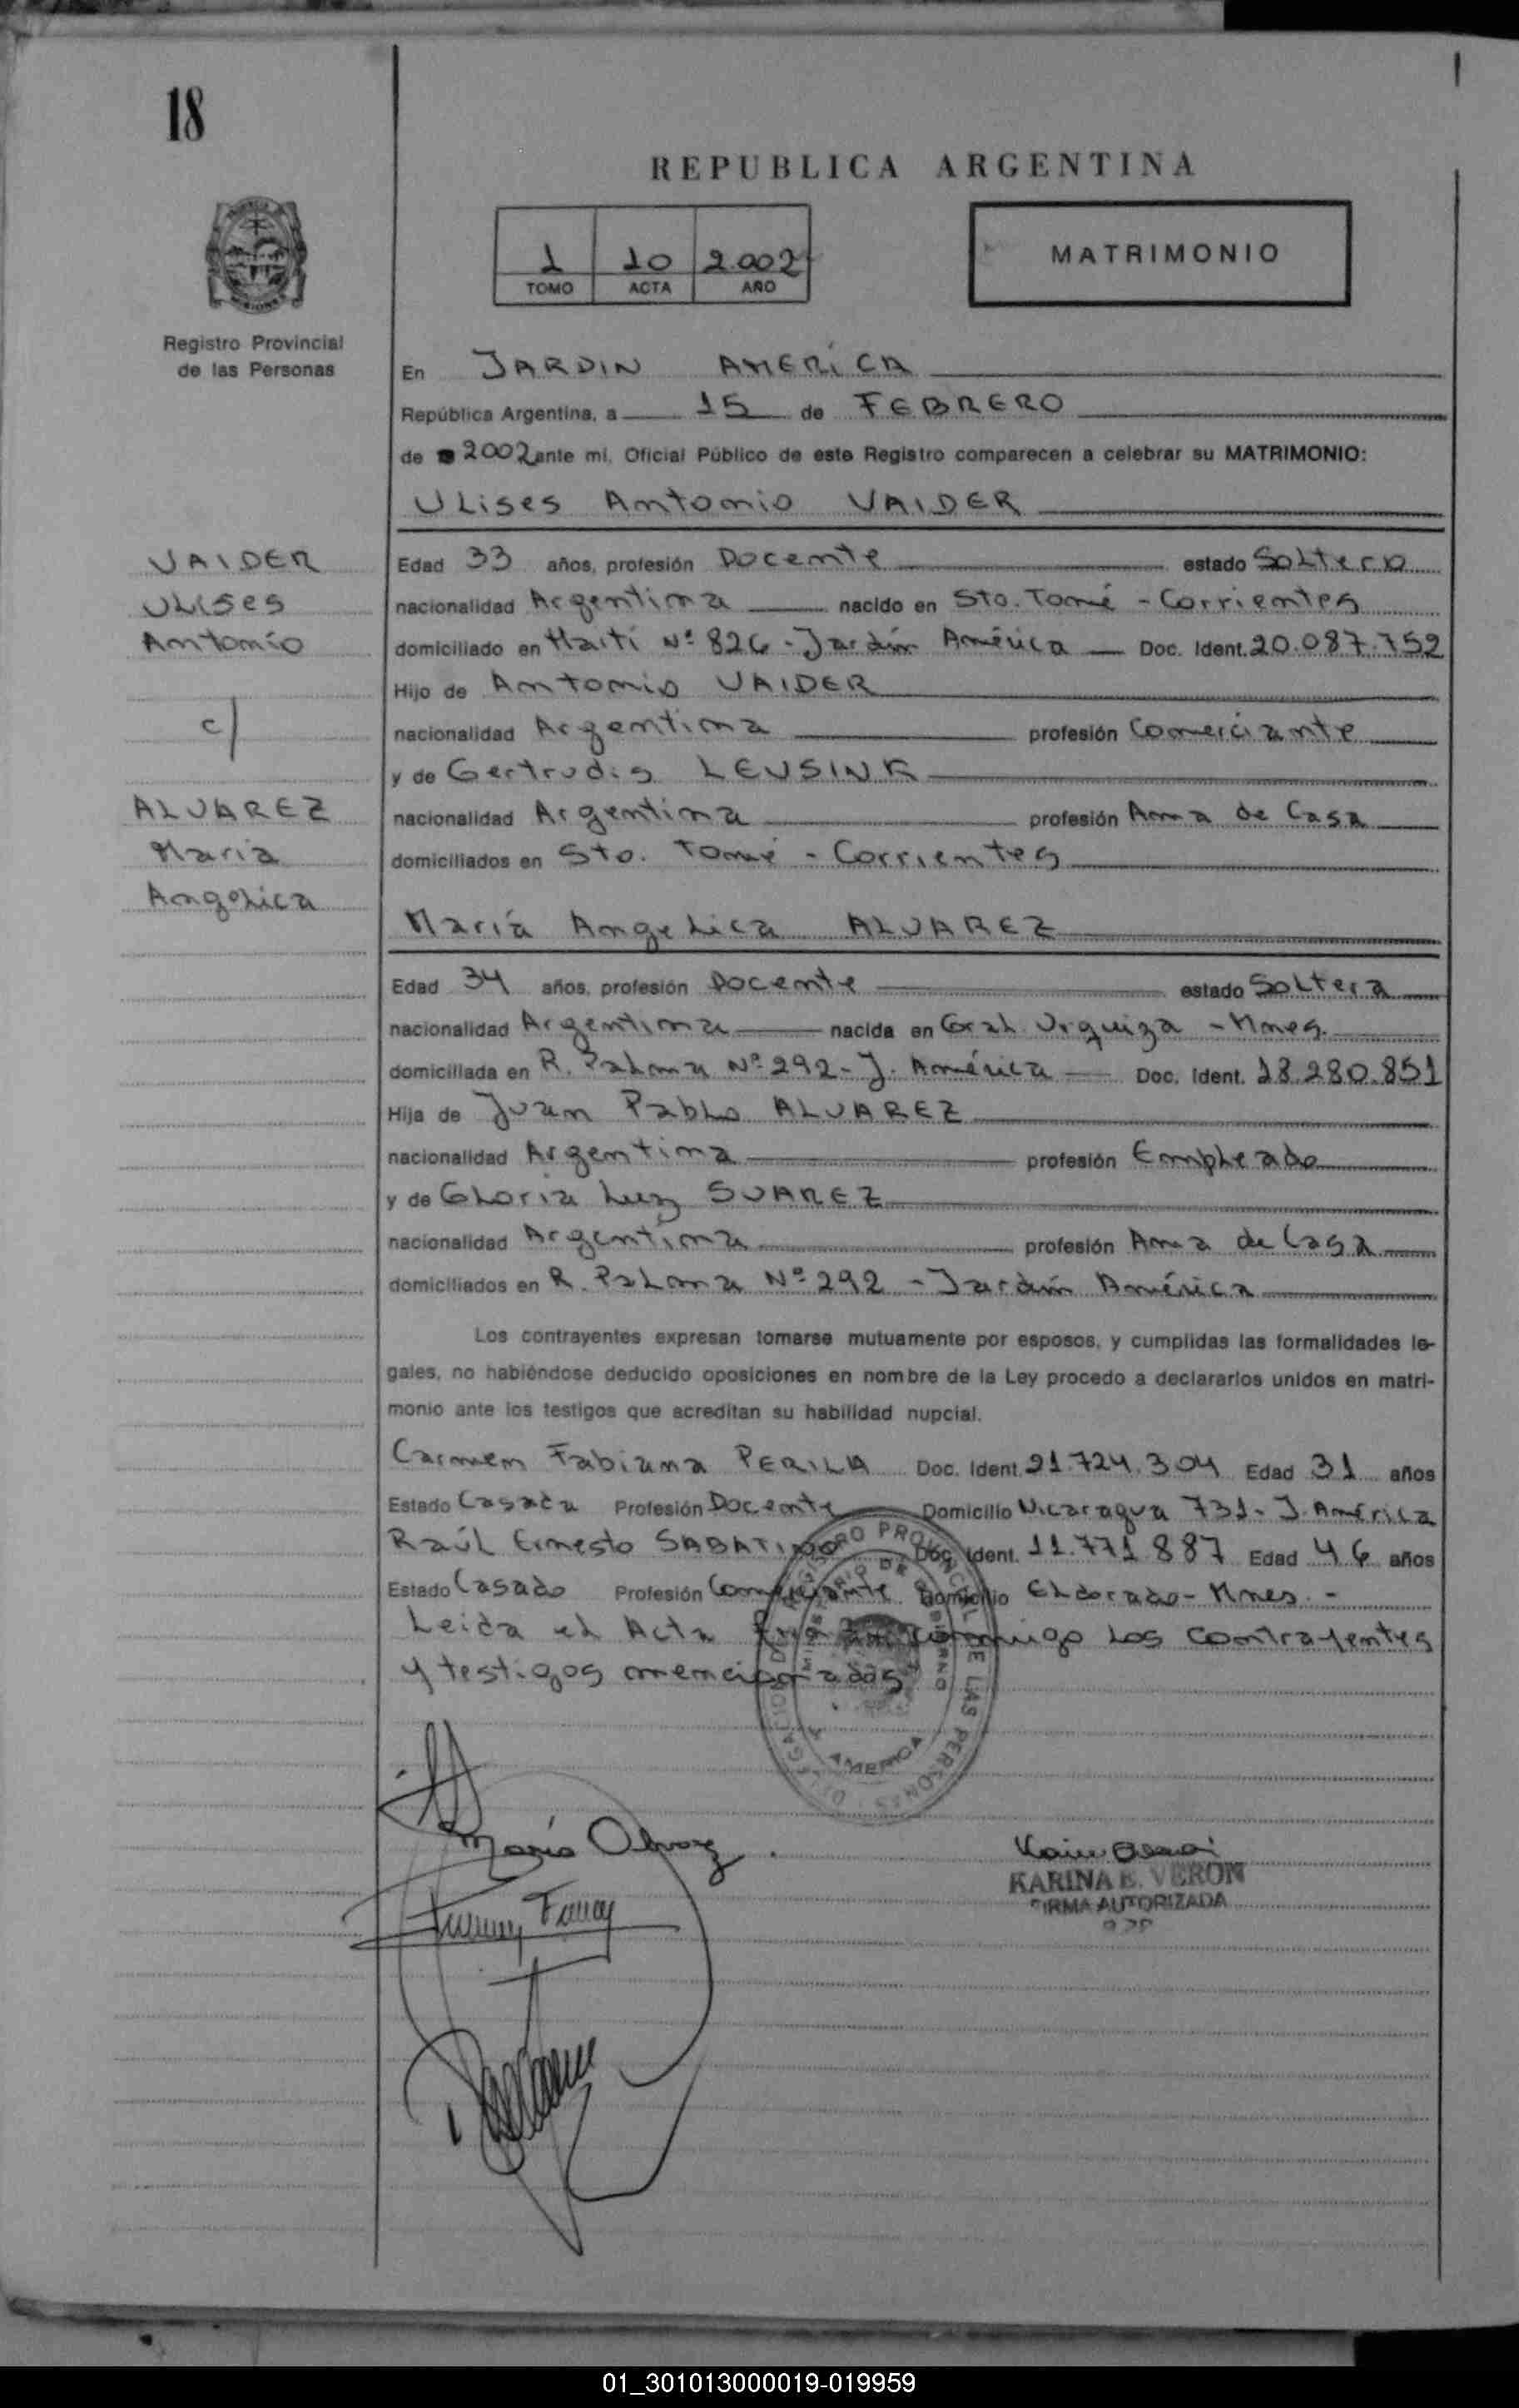 18
REPUBLICA ARGENTINA
1 10 2.002
TOMO ACTA AÑO
MATRIMONIO
Registro Provincial
de las Personas
En JARDIN AMERICA
República Argentina, a 15 de FEBRERO
de 2002 ante mi, Oficial Público de este Registro comparecen a celebrar su MATRIMONIO:
Ulises Antonio VAIDER
VAIDER
Ulises
Antonio
c/
ALVAREZ
María
Angelica
Edad 33 años, profesión Docente estado Soltero
nacionalidad Argentina nacido en Sto. Tomé - Corrientes
domiciliado en Haití Nº 826 - Jardín América Doc. Ident. 20.087.752
Hijo de Antonio VAIDER
nacionalidad Argentina profesión Comerciante
y de Gertrudis LEUSINK
nacionalidad Argentina profesión Ama de Casa
domiciliados en Sto. Tomé - Corrientes
María Angelica ALVAREZ
Edad 34 años, profesión Docente estado Soltera
nacionalidad Argentina nacida en Gral. Urquiza - Mnes.
domiciliada en R. Palma Nº 292 - J. América Doc. Ident. 18.280.851
Hija de Juan Pablo ALVAREZ
nacionalidad Argentina profesión Empleado
y de Gloria Luz SUAREZ
nacionalidad Argentina profesión Ama de Casa
domiciliados en R. Palma Nº 292 - Jardín América
Los contrayentes expresan tomarse mutuamente por esposos, y cumplidas las formalidades le-
gales, no habiéndose deducido oposiciones en nombre de la Ley procedo a declararlos unidos en matri-
monio ante los testigos que acreditan su habilidad nupcial.
Carmen Fabiana PERILA Doc. Ident. 21.724.304 Edad 31 años
Estado Casada Profesión Docente Domicilio Nicaragua 731 - J. América
Raúl Ernesto SABATINO Doc. Ident. 11.771.887 Edad 46 años
Estado Casado Profesión Comerciante Domicilio Eldorado - Mnes. -
Leida el Acta conmigo los contrayentes
y testigos mencionados
DELEGACION REGISTRO PROVINCIAL DE LAS PERSONAS
MINISTERIO DE GOBIERNO
AMERICA
María
KARINA E. VERON
FIRMA AUTORIZADA
01_301013000019-019959